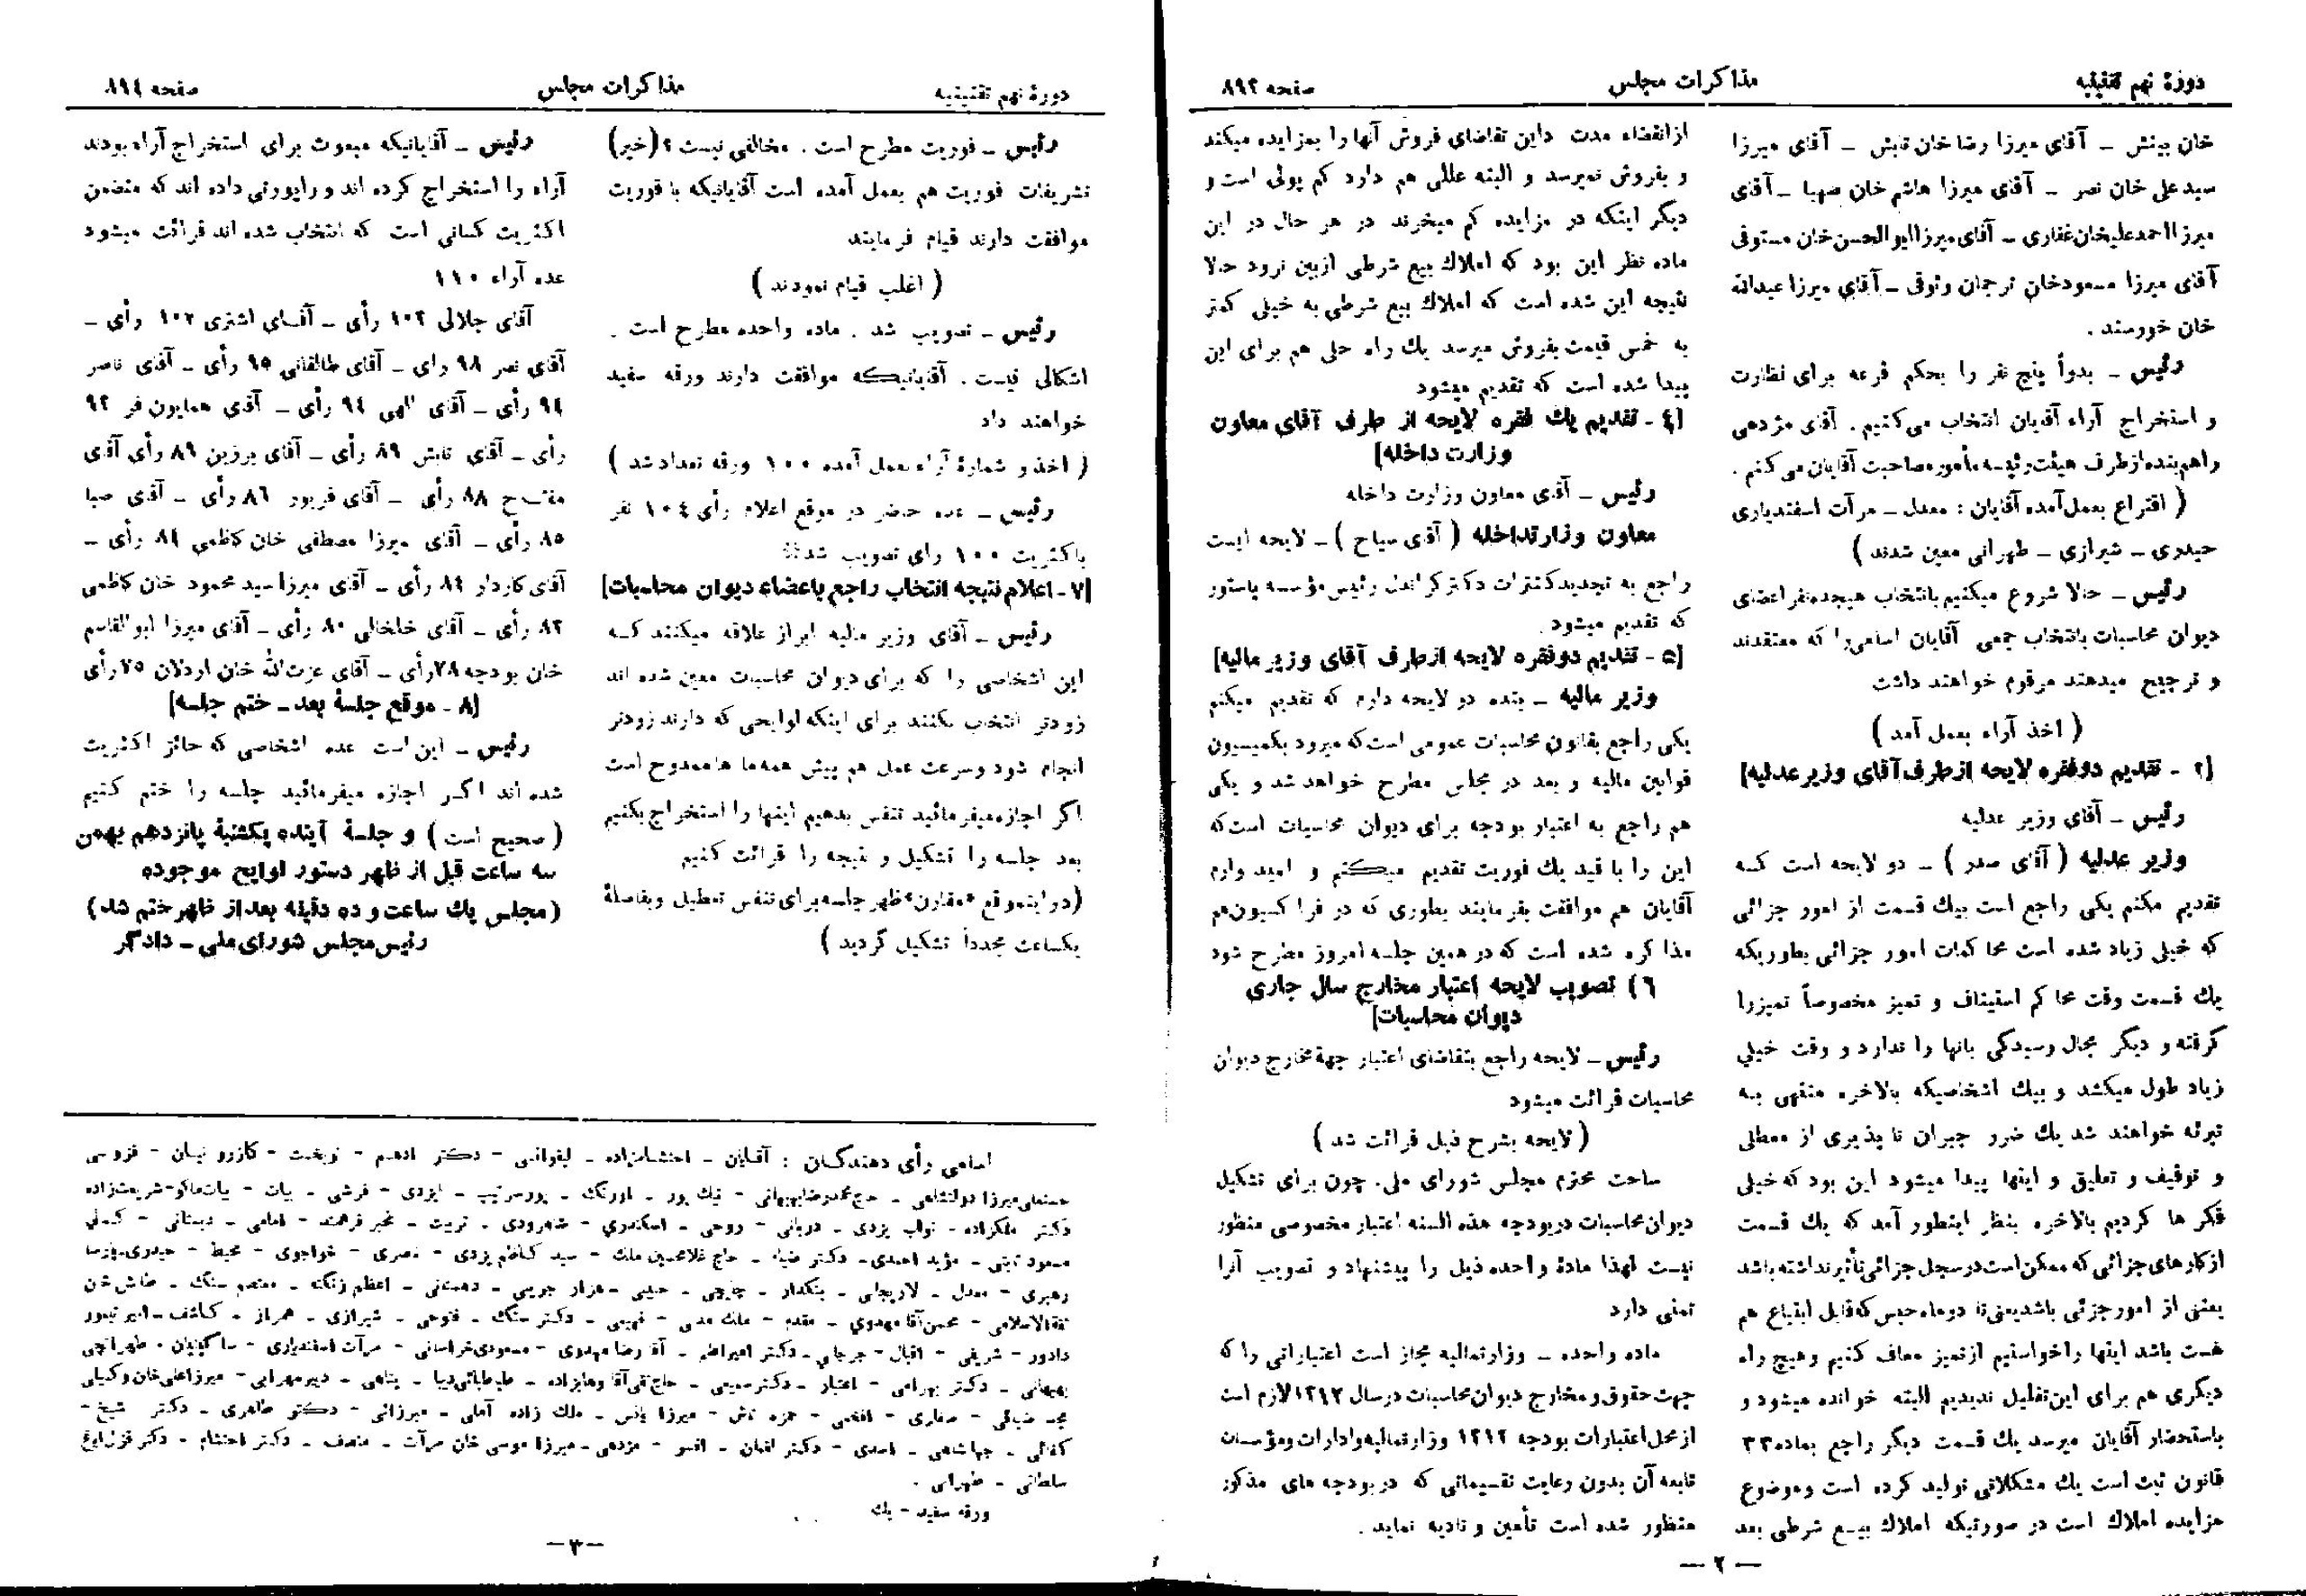 دورهٔ نهم تقنینیه
مذاکرات مجلس
صفحه ۸۹۳
خان بینش ـ آقای میرزا رضا خان تابش ـ آقای میرزا
سید علی خان نصر ـ آقای میرزا هاشم خان صهبا ـ آقای
میرزا احمد علیخان غفاری ـ آقای میرزا ابوالحسن خان مستوفی
آقای میرزا مسعود خان ترجمان وثوقی ـ آقای میرزا عبدالله
خان خورسند .
رئیس ـ بدواً پنج نفر را بحکم قرعه برای نظارت
و استخراج آراء آقایان انتخاب می‌کنیم . آقای مژدهی
راهم بنده از طرف هیئت رئیسه مأمور مصاحبت آقایان می‌کنم .
( اقتراع بعمل آمده آقایان : معدل ـ مرآت اسفندیاری
حیدری ـ شیرازی ـ طهرانی معین شدند )
رئیس ـ حالا شروع میکنیم بانتخاب هیجده نفر اعضای
دیوان محاسبات بانتخاب جمعی آقایان اسامی را که معتقدند
و ترجیح میدهند مرقوم خواهند داشت
( اخذ آراء بعمل آمد )
[۳ ـ تقدیم دو فقره لایحه از طرف آقای وزیر عدلیه]
رئیس ـ آقای وزیر عدلیه
وزیر عدلیه ( آقای صدر ) ـ دو لایحه است کـه
تقدیم مکنم یکی راجع است بیك قسمت از امور جزائی
که خیلی زیاد شده است محاکمات امور جزائی بطوریکه
یك قسمت وقت محاکم استیناف و تمیز مخصوصاً تمیز را
گرفته و دیگر مجال رسیدگی بانها را ندارد و وقت خیلی
زیاد طول میکشد و بیك اشخاصیکه بالاخره منتهی بـه
تبرئه خواهند شد یك ضرر جبران ناپذیری از معطلی
و توقیف و تعلیق و اینها پیدا میشود این بود که خیلی
فکر ها کردیم بالاخره بنظر اینطور آمد که یك قسمت
از کارهای جزائی که ممکن است در سجل جزائی تأثیر نداشته باشد
یعنی از امور جزئی باشد یعنی تا دو ماه حبس که قابل ابتیاع هم
هست باشد اینها را خواستیم از تمیز معاف کنیم و هیچ راه
دیگری هم برای این تقلیل ندیدیم البته خوانده میشود و
باستحضار آقایان میرسد یك قسمت دیگر راجع بماده ۳۳
قانون ثبت است یك مشکلاتی تولید کرده است و موضوع
مزایده املاك است در صورتیکه املاك بیـع شرطی بعد
از انقضاء مدت داین تقاضای فروش آنها را بمزایده میکند
و بفروش نمیرسد و البته عللی هم دارد کم پولی است و
دیگر اینکه در مزایده کم میخرند در هر حال در این
ماده نظر این بود که املاك بیع شرطی از بین نرود حالا
نتیجه این شده است که املاك بیع شرطی به خیلی کمتر
به خمس قیمت بفروش میرسد یك راه حلی هم برای این
پیدا شده است که تقدیم میشود
[٤ ـ تقدیم یك فقره لایحه از طرف آقای معاون
وزارت داخله]
رئیس ـ آقای معاون وزارت داخله
معاون وزارتداخله ( آقای سیاح ) ـ لایحه ایست
راجع به تجدید کنترات دکتر کراندل رئیس مؤسسه پاستور
که تقدیم میشود .
[٥ ـ تقدیم دو فقره لایحه از طرف آقای وزیر مالیه]
وزیر مالیه ـ بنده دو لایحه دارم که تقدیم میکنم
یکی راجع بقانون محاسبات عمومی است که میرود بکمیسیون
قوانین مالیه و بعد در مجلس مطرح خواهد شد و یکی
هم راجع به اعتبار بودجه برای دیوان محاسبات است که
این را با قید یك فوریت تقدیم میـکنم و امید وارم
آقایان هم موافقت بفرمایند بطوری که در فراکسیون هم
مذاکره شده است که در همین جلسه امروز مطرح شود
٦ ) تصویب لایحه اعتبار مخارج سال جاری
دیوان محاسبات]
رئیس ـ لایحه راجع بتقاضای اعتبار جهة مخارج دیوان
محاسبات قرائت میشود
( لایحه بشرح ذیل قرائت شد )
ساحت محترم مجلس شورای ملی . چون برای تشکیل
دیوان محاسبات در بودجه هذه السنه اعتبار مخصوصی منظور
نیست لهذا مادهٔ واحده ذیل را پیشنهاد و تصویب آنرا
تمنی دارد
ماده واحده ـ وزارتمالیه مجاز است اعتباراتی را که
جهت حقوق و مخارج دیوان محاسبات در سال ۱۳۱۲ لازم است
از محل اعتبارات بودجه ۱۳۱۲ وزارتمالیه و ادارات و مؤسسات
تابعه آن بدون رعایت تقسیماتی که در بودجه های مذکور
منظور شده است تأمین و تادیه نماید .
ـ ۲ ـ
دورهٔ نهم تقنینیه
مذاکرات مجلس
صفحه ۸۹٤
رئیس ـ فوریت مطرح است . مخالفی نیست ؟ (خیر)
تشریفات فوریت هم بعمل آمده است آقایانیکه با فوریت
موافقت دارند قیام فرمایند
( اغلب قیام نمودند )
رئیس ـ تصویب شد . ماده واحده مطرح است .
اشکالی نیست . آقایانیـکه موافقت دارند ورقه سفید
خواهند داد
( اخذ و شمارهٔ آراء بعمل آمده ۱۰۰ ورقه تعداد شد )
رئیس ـ عده حاضر در موقع اعلام رأی ۱۰٤ نفر
باکثریت ۱۰۰ رای تصویب شد
[۷ ـ اعلام نتیجه انتخاب راجع باعضاء دیوان محاسبات]
رئیس ـ آقای وزیر مالیه ابراز علاقه میکنند کـه
این اشخاصی را که برای دیوان محاسبات معین شده اند
زودتر انتخاب بکنند برای اینکه لوایحی که دارند زودتر
انجام شود و سرعت عمل هم پیش همه ماها ممدوح است
اگر اجازه میفرمائید تنفس بدهیم اینها را استخراج بکنیم
بعد جلسه را تشکیل و نتیجه را قرائت کنیم
(در اینموقع مقارن ظهر جلسه برای تنفس تعطیل و بفاصلهٔ
یکساعت مجدداً تشکیل گردید )
رئیس ـ آقایانیکه مبعوث برای استخراج آراء بودند
آراء را استخراج کرده اند و راپورتی داده اند که متضمن
اکثریت کسانی است که انتخاب شده اند قرائت میشود
عده آراء ۱۱۰
آقای جلالی ۱۰۳ رأی ـ آقـای اشتری ۱۰۲ رأی ـ
آقای نصر ۹۸ رای ـ آقای طالقانی ۹٥ رأی ـ آقای ناصر
۹٤ رأی ـ آقای الهی ۹٤ رأی ـ آقای همایون فر ۹۲
رأی ـ آقای تابش ۸۹ رأی ـ آقای برزین ۸۹ رأی آقای
مفتـاح ۸۸ رأی ـ آقای فریور ۸٦ رأی ـ آقای صبا
۸٥ رأی ـ آقای میرزا مصطفی خان کاظمی ۸٤ رأی ـ
آقای کاردار ۸٤ رأی ـ آقای میرزا سید محمود خان کاظمی
۸۲ رأی ـ آقای خلخالی ۸۰ رأی ـ آقای میرزا ابوالقاسم
خان بودجه ۷۸ رأی ـ آقای عزت‌الله خان اردلان ۷٥ رأی
[۸ ـ موقع جلسهٔ بعد ـ ختم جلسه]
رئیس ـ این است عده اشخاصی که حائز اکثریت
شده اند اگـر اجازه میفرمائید جلسه را ختم کنیم
( صحیح است ) و جلسهٔ آینده یکشنبهٔ پانزدهم بهمن
سه ساعت قبل از ظهر دستور لوایح موجوده
(مجلس یك ساعت و ده دقیقه بعد از ظهر ختم شد)
رئیس مجلس شورای ملی ـ دادگر
اسامی رأی دهندگـان : آقـایان ـ احتشـامزاده ـ لیقوانـی ـ دـکتر ادهـم ـ نوبخت ـ کازرونیـان ـ فزونـی
حسنعلی میرزا دولتشاهی ـ حاج محمد رضا بهبهانی ـ نیك پور ـ اورنگ ـ پورسرتیپ ـ ایزدی ـ قرشی ـ بیات ـ بیات ماکو ـ شریعت زاده
دکتر ملکزاده ـ نواب یزدی ـ دربانی ـ روحی ـ اسکندری ـ شاهرودی ـ تربیت ـ مخبر فرهمند ـ امامی ـ دبستانی ـ کمالی
مسعود ثابتی ـ مؤید احمدی ـ دکتر ضیاء ـ حاج غلامحسین ملك ـ سید کـاظم یزدی ـ نصری ـ خواجوی ـ محیط ـ حیدری ـ پارسا
رهبری ـ معدل ـ لاریجانی ـ بنکدار ـ چایچی ـ حبیبی ـ هزار جریبی ـ دهستانی ـ اعظم زنگنه ـ معتصم سنگ ـ طاش خان
ثقة‌الاسلامی ـ محسن آقا مهدوی ـ مقدم ـ ملك مدنی ـ فهیمی ـ دکتر سنگ ـ فتوحی ـ شیرازی ـ همراز ـ کـاشف ـ امیر تیمور
دادور ـ شریفی ـ اقبال ـ جرجانی ـ دکتر امیراعلم ـ آقا رضا مهدوی ـ مسعودی خراسانی ـ مرآت اسفندیاری ـ ساگینیان ـ طهرانچی
بهبهانی ـ دکتر بهرامی ـ اعتبار ـ دکتر سمیعی ـ حاج تقی آقا وهابزاده ـ طباطبائی دیبا ـ پناهی ـ دبیر سهرابی ـ میرزاعلی خان وکیلی
مجد ضیائی ـ صفاری ـ افخمی ـ حمزه تاش ـ میرزا یانس ـ ملك زاده آملی ـ میرزائی ـ دـکتر طاهری ـ دکتر شیخ ـ
کفائی ـ جهانشاهی ـ اسدی ـ دکتر لقمان ـ افسر ـ مژدهی ـ میرزا موسی خان مرآت ـ منصف ـ دکتر احتشام ـ دکتر قزل ایاغ
سلطانی ـ طهرانی .
ورقه سفید ـ یك
ـ ۳ ـ